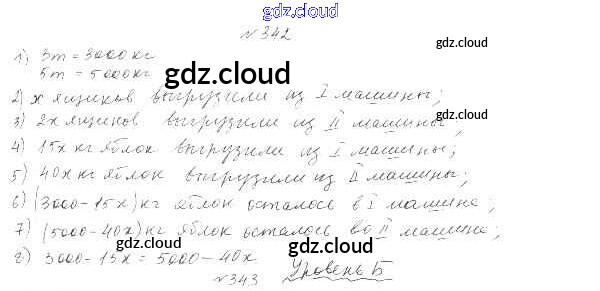 gdz.cloud
№342
gdz.cloud
1) 3т = 3000 кг
5т = 5000 кг
gdz.cloud
2) x ящиков выгрузили из I машины;
gdz.cloud
3) 2x ящиков выгрузили из II машины;
4) 15x кг яблок выгрузили из I машины;
5) 40x кг яблок выгрузили из II машины;
6) (3000-15x) кг яблок осталось в I машине;
7) (5000-40x) кг яблок осталось во II машине;
gdz.cloud gdz.cloud
г) 3000-15x = 5000-40x
№343 Уровень Б